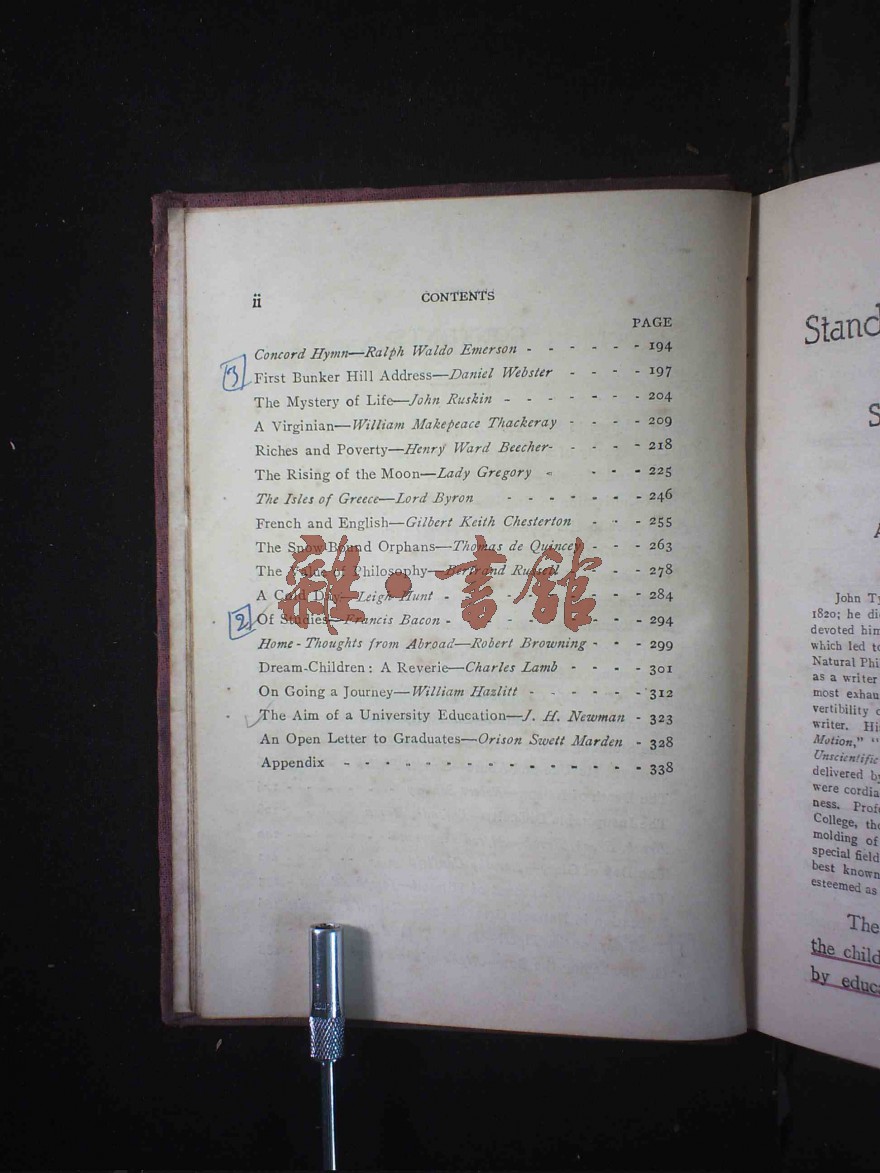 ii
CONTENTS
PAGE
Concord Hymn—Ralph Waldo Emerson - - - - - - 194
3
First Bunker Hill Address—Daniel Webster - - - - 197
The Mystery of Life—John Ruskin - - - - - - 204
A Virginian—William Makepeace Thackeray - - - - 209
Riches and Poverty—Henry Ward Beecher- - - - - 218
The Rising of the Moon—Lady Gregory - - - - 225
The Isles of Greece—Lord Byron - - - - - - 246
French and English—Gilbert Keith Chesterton - - - - 255
The Snow-Bound Orphans—Thomas de Quincey - - - 263
The Value of Philosophy—Bertrand Russell - - - 278
A Cold Day—Leigh Hunt - - - - - - - 284
2
Of Studies—Francis Bacon - - - - - - - 294
Home-Thoughts from Abroad—Robert Browning - - - 299
Dream-Children: A Reverie—Charles Lamb - - - - 301
On Going a Journey—William Hazlitt - - - - - - 312
The Aim of a University Education—J. H. Newman - 323
An Open Letter to Graduates—Orison Swett Marden - 328
Appendix - - - - - - - - - - - - - - 338
雜·書館
Stand
S
A
John Ty
1820; he di
devoted him
which led to
Natural Phil
as a writer
most exhau
vertibility o
writer. Hi
Motion," "
Unscientific
delivered by
were cordia
ness. Profe
College, the
molding of
special field
best known
esteemed as
The
the child
by educa